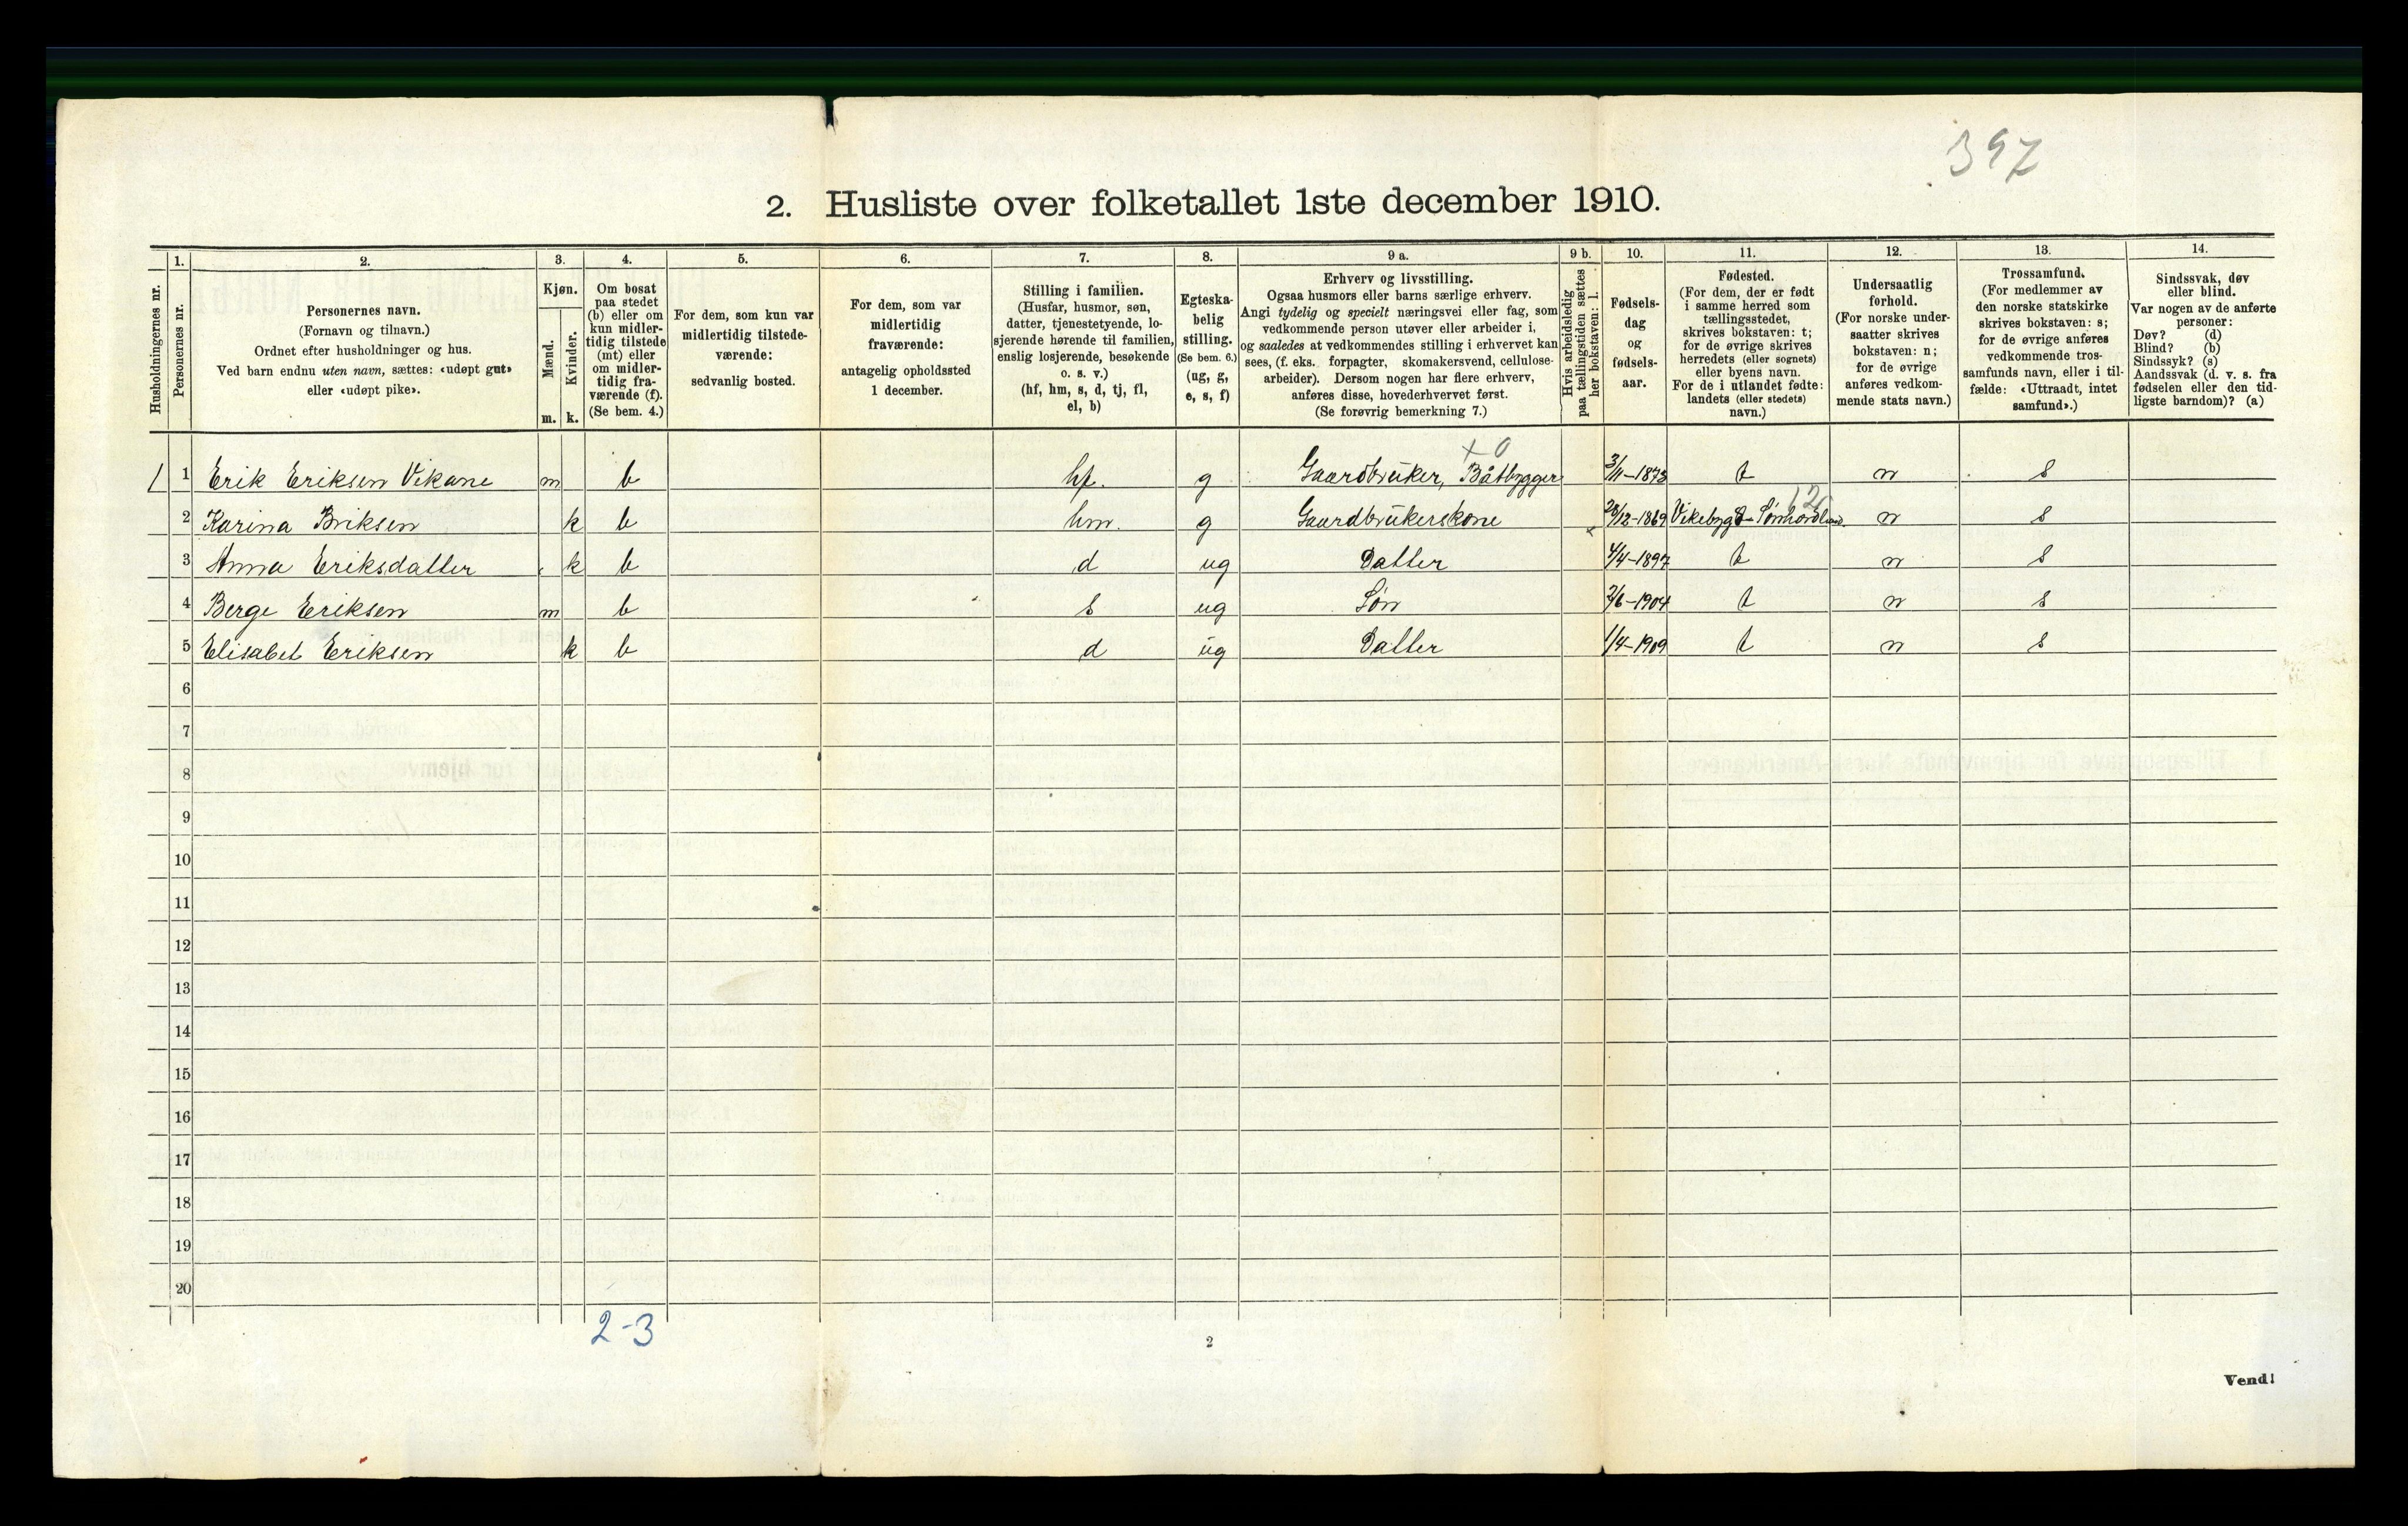 397
2. Husliste over folketallet 1ste december 1910.
Husholdningernes nr.
1.
Personernes nr.
2.
Personernes navn.
(Fornavn og tilnavn.)
Ordnet efter husholdninger og hus.
Ved barn endnu uten navn, sættes: «udøpt gut»
eller «udøpt pike».
3.
Kjøn.
Mænd.
m.
Kvinder.
k.
4.
Om bosat
paa stedet
(b) eller om
kun midler-
tidig tilstede
(mt) eller
om midler-
tidig fra-
værende (f).
(Se bem. 4.)
5.
For dem, som kun var
midlertidig tilstede-
værende:
sedvanlig bosted.
6.
For dem, som var
midlertidig
fraværende:
antagelig opholdssted
1 december.
7.
Stilling i familien.
(Husfar, husmor, søn,
datter, tjenestetyende, lo-
sjerende hørende til familien,
enslig losjerende, besøkende
o. s. v.)
(hf, hm, s, d, tj, fl,
el, b)
8.
Egteska-
belig
stilling.
(Se bem. 6.)
(ug, g,
e, s, f)
9 a.
Erhverv og livsstilling.
Ogsaa husmors eller barns særlige erhverv.
Angi tydelig og specielt næringsvei eller fag, som
vedkommende person utøver eller arbeider i,
og saaledes at vedkommendes stilling i erhvervet kan
sees, (f. eks. forpagter, skomakersvend, cellulose-
arbeider). Dersom nogen har flere erhverv,
anføres disse, hovederhvervet først.
(Se forøvrig bemerkning 7.)
9 b.
Hvis arbeidsledig
paa tællingstiden sættes
her bokstaven: l.
10.
Fødsels-
dag
og
fødsels-
aar.
11.
Fødested.
(For dem, der er født
i samme herred som
tællingsstedet,
skrives bokstaven: t;
for de øvrige skrives
herredets (eller sognets)
eller byens navn.
For de i utlandet fødte:
landets (eller stedets)
navn.)
12.
Undersaatlig
forhold.
(For norske under-
saatter skrives
bokstaven: n;
for de øvrige
anføres vedkom-
mende stats navn.)
13.
Trossamfund.
(For medlemmer av
den norske statskirke
skrives bokstaven: s;
for de øvrige anføres
vedkommende tros-
samfunds navn, eller i til-
fælde: «Uttraadt, intet
samfund».)
14.
Sindssvak, døv
eller blind.
Var nogen av de anførte
personer:
Døv? (d)
Blind? (b)
Sindssyk? (s)
Aandssvak (d. v. s. fra
fødselen eller den tid-
ligste barndom)? (a)
x 0
1 1 Erik Eriksen Vikane m b hf. g Gaardbruker, Båtbygger 3/11-1873 t n s
120
2 Karina Eriksen k b hm. g Gaardbrukerskone 28/12-1869 Vikebygd Sønhordland. n s
3 Anna Eriksdatter k b d ug Datter 4/4-1897 t n s
4 Berge Eriksen m b s ug Søn 2/6-1904 t n s
5 Elisabet Eriksen k b d ug Datter 1/4-1909 t n s
6
7
8
9
10
11
12
13
14
15
16
17
18
19
20
2-3
2
Vend!